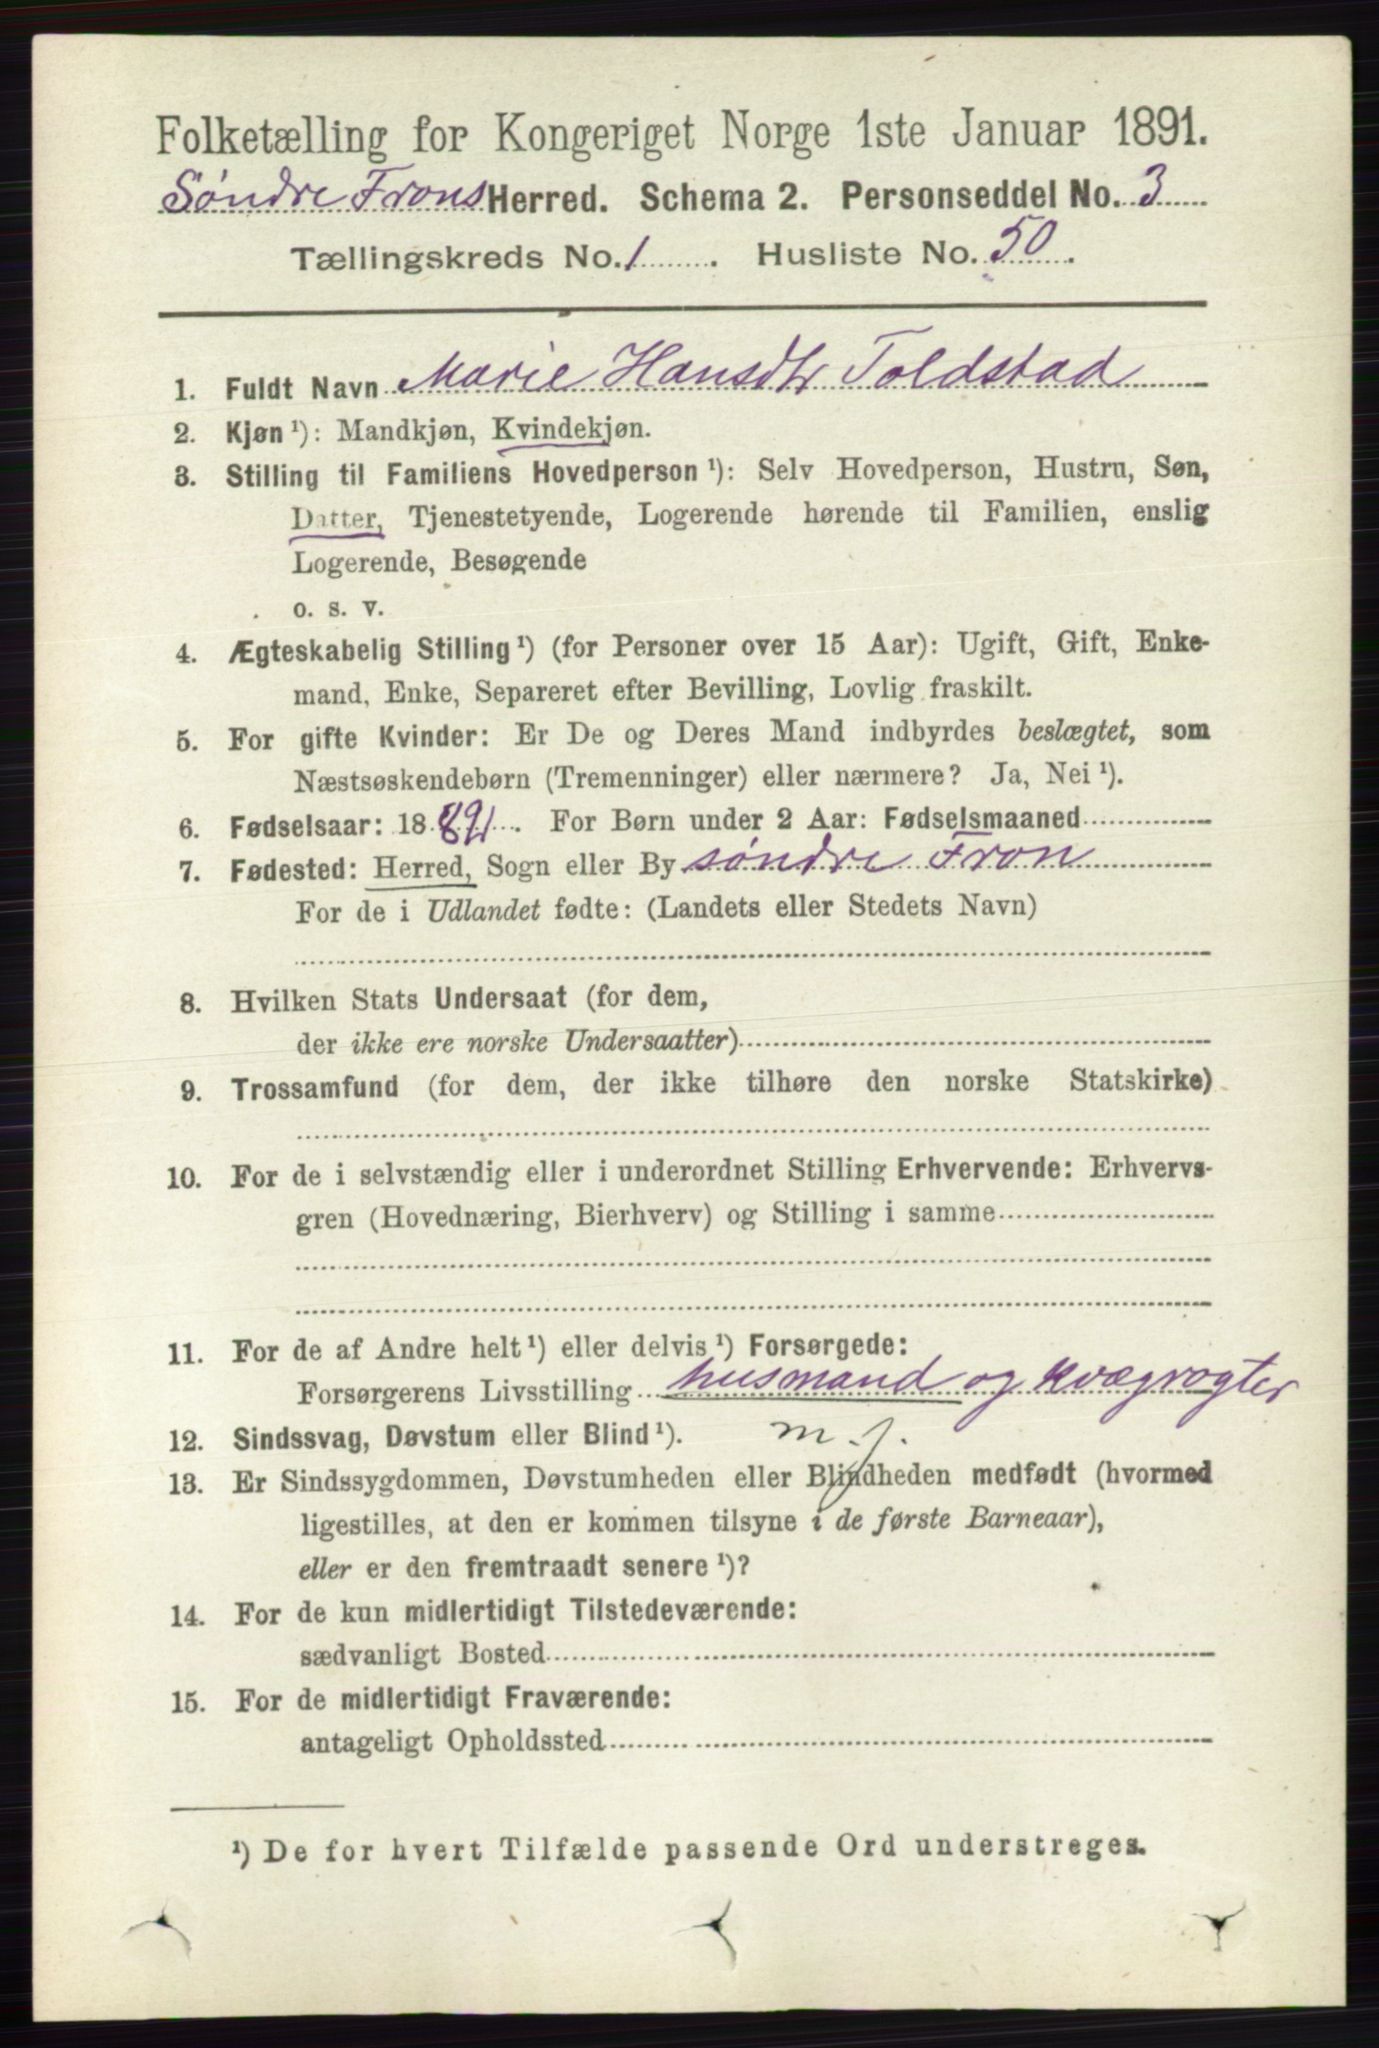 Folketælling for Kongeriget Norge 1ste Januar 1891.
Søndre Frons Herred. Schema 2. Personseddel No. 3
Tællingskreds No. 1. Husliste No. 50.
1. Fuldt Navn Marie Hansdtr Toldstad
2. Kjøn ¹): Mandkjøn, Kvindekjøn.
3. Stilling til Familiens Hovedperson ¹): Selv Hovedperson, Hustru, Søn,
Datter, Tjenestetyende, Logerende hørende til Familien, enslig
Logerende, Besøgende
o. s. v.
4. Ægteskabelig Stilling ¹) (for Personer over 15 Aar): Ugift, Gift, Enke-
mand, Enke, Separeret efter Bevilling, Lovlig fraskilt.
5. For gifte Kvinder: Er De og Deres Mand indbyrdes beslægtet, som
Næstsøskendebørn (Tremenninger) eller nærmere? Ja, Nei ¹).
6. Fødselsaar: 18 . For Børn under 2 Aar: Fødselsmaaned
7. Fødested: Herred, Sogn eller By søndre Fron
For de i Udlandet fødte: (Landets eller Stedets Navn)
8. Hvilken Stats Undersaat (for dem,
der ikke ere norske Undersaatter)
9. Trossamfund (for dem, der ikke tilhøre den norske Statskirke)
10. For de i selvstændig eller i underordnet Stilling Erhvervende: Erhvervs-
gren (Hovednæring, Bierhverv) og Stilling i samme
11. For de af Andre helt ¹) eller delvis ¹) Forsørgede:
Forsørgerens Livsstilling husmand og kvægrogter
12. Sindssvag, Døvstum eller Blind ¹). m. j.
13. Er Sindssygdommen, Døvstumheden eller Blindheden medfødt (hvormed
ligestilles, at den er kommen tilsyne i de første Barneaar),
eller er den fremtraadt senere ¹)?
14. For de kun midlertidigt Tilstedeværende:
sædvanligt Bosted
15. For de midlertidigt Fraværende:
antageligt Opholdssted
¹) De for hvert Tilfælde passende Ord understreges.